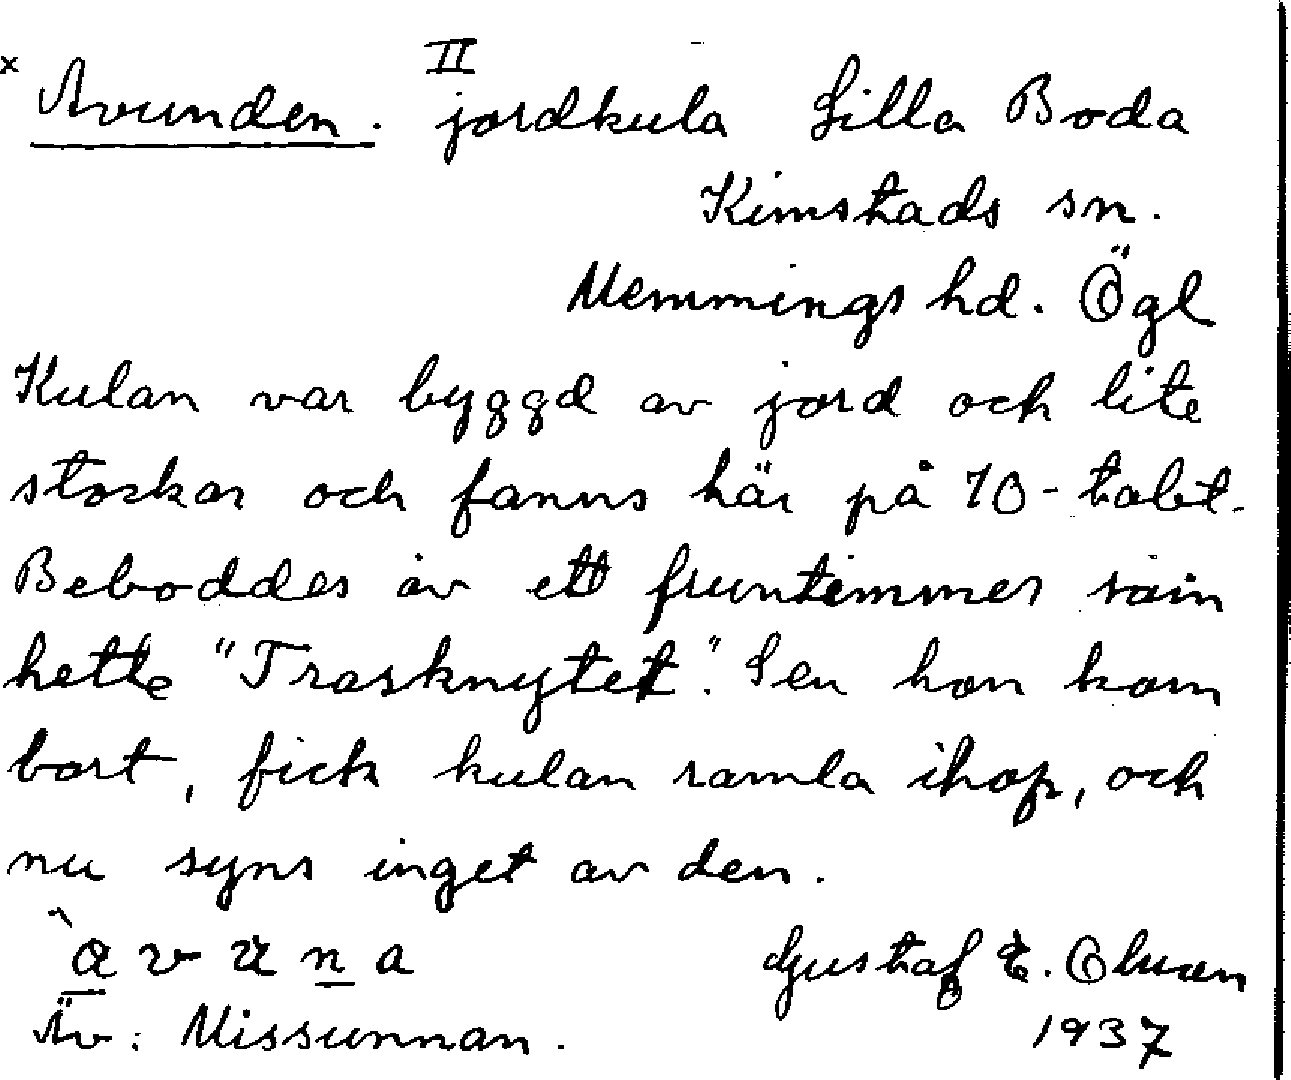 × Avunden. II jordkula Lilla Boda
Kimstads sn.
Memmings hd. Ögl
Kulan var byggd av jord och lite
stockar och fanns här på 70-talet.
Beboddes av ett fruntimmer som
hette "Trasknytet". Sen hon kom
bort, fick kulan ramla ihop, och
nu syns inget av den.
`avuna Gustaf E. Olsson
Äv: Missunnan. 1937